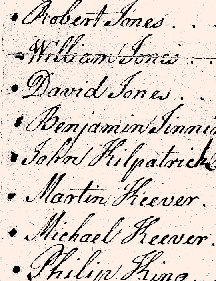 Robert Jones.
William Jones
David Jones.
Benjamin
John Kilpatrick
Martin Keever.
Michael Keever.
Philip King.